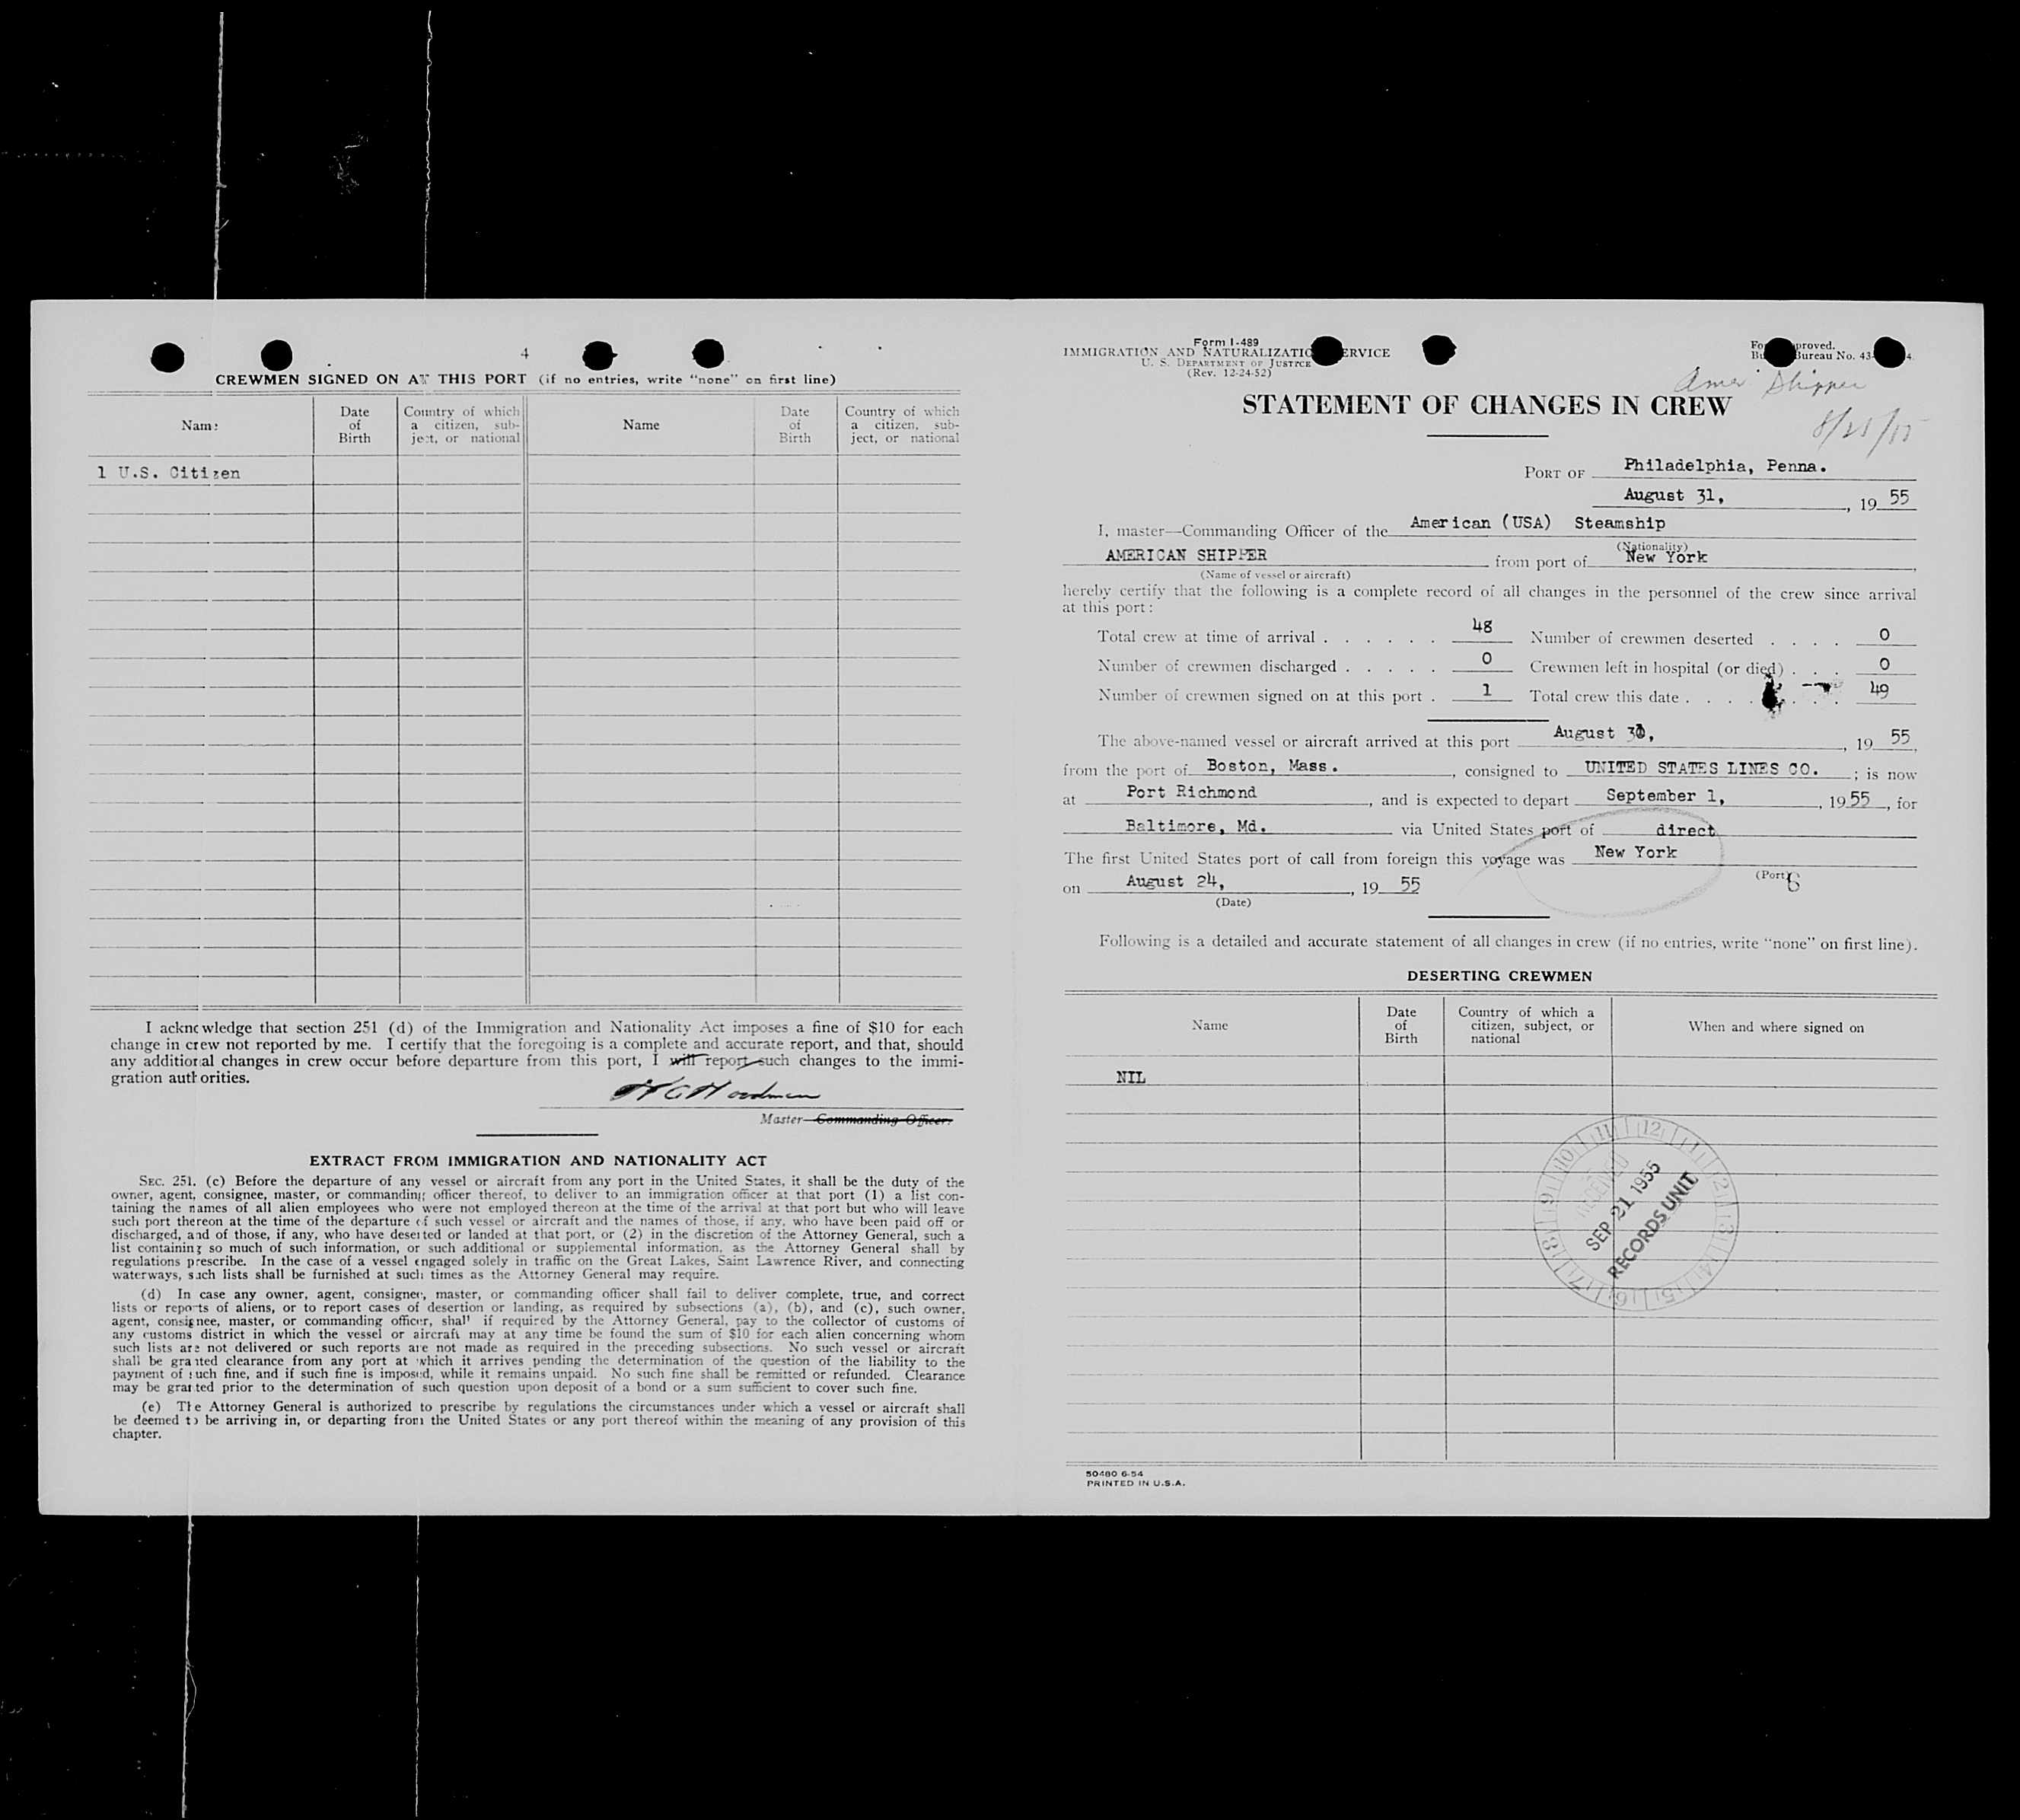 4
CREWMEN SIGNED ON AT THIS PORT (if no entries, write "none" on first line)
Name
Date of Birth
Country of which a citizen, subject, or national
Name
Date of Birth
Country of which a citizen, subject, or national
1 U.S. Citizen
I acknowledge that section 251 (d) of the Immigration and Nationality Act imposes a fine of $10 for each
change in crew not reported by me. I certify that the foregoing is a complete and accurate report, and that, should
any additional changes in crew occur before departure from this port, I will report such changes to the immi-
gration authorities.
Master—Commanding Officer.
EXTRACT FROM IMMIGRATION AND NATIONALITY ACT
SEC. 251. (c) Before the departure of any vessel or aircraft from any port in the United States, it shall be the duty of the
owner, agent, consignee, master, or commanding officer thereof, to deliver to an immigration officer at that port (1) a list con-
taining the names of all alien employees who were not employed thereon at the time of the arrival at that port but who will leave
such port thereon at the time of the departure of such vessel or aircraft and the names of those, if any, who have been paid off or
discharged, and of those, if any, who have deserted or landed at that port, or (2) in the discretion of the Attorney General, such a
list containing so much of such information, or such additional or supplemental information, as the Attorney General shall by
regulations prescribe. In the case of a vessel engaged solely in traffic on the Great Lakes, Saint Lawrence River, and connecting
waterways, such lists shall be furnished at such times as the Attorney General may require.
(d) In case any owner, agent, consignee, master, or commanding officer shall fail to deliver complete, true, and correct
lists or reports of aliens, or to report cases of desertion or landing, as required by subsections (a), (b), and (c), such owner,
agent, consignee, master, or commanding officer, shall if required by the Attorney General, pay to the collector of customs of
any customs district in which the vessel or aircraft may at any time be found the sum of $10 for each alien concerning whom
such lists are not delivered or such reports are not made as required in the preceding subsections. No such vessel or aircraft
shall be granted clearance from any port at which it arrives pending the determination of the question of the liability to the
payment of such fine, and if such fine is imposed, while it remains unpaid. No such fine shall be remitted or refunded. Clearance
may be granted prior to the determination of such question upon deposit of a bond or a sum sufficient to cover such fine.
(e) The Attorney General is authorized to prescribe by regulations the circumstances under which a vessel or aircraft shall
be deemed to be arriving in, or departing from the United States or any port thereof within the meaning of any provision of this
chapter.
Form I-489
IMMIGRATION AND NATURALIZATION SERVICE
U. S. DEPARTMENT OF JUSTICE
(Rev. 12-24-52)
Form approved.
Bureau No. 43-
Amer Shipper
STATEMENT OF CHANGES IN CREW
PORT OF Philadelphia, Penna.
August 31, , 19 55
I, master—Commanding Officer of the American (USA) Steamship
(Nationality)
AMERICAN SHIPPER from port of New York ,
(Name of vessel or aircraft)
hereby certify that the following is a complete record of all changes in the personnel of the crew since arrival
at this port:
Total crew at time of arrival . . . . . . 48 Number of crewmen deserted . . . . 0
Number of crewmen discharged . . . . . 0 Crewmen left in hospital (or died) . . . 0
Number of crewmen signed on at this port . 1 Total crew this date . . . . . . . 49
The above-named vessel or aircraft arrived at this port August , 19 55,
from the port of Boston, Mass. , consigned to UNITED STATES LINES CO. ; is now
at Port Richmond , and is expected to depart September 1, , 1955 , for
Baltimore, Md. via United States port of direct
The first United States port of call from foreign this voyage was New York
(Port)
on August 24, , 19 55
(Date)
Following is a detailed and accurate statement of all changes in crew (if no entries, write "none" on first line).
DESERTING CREWMEN
Name
Date of Birth
Country of which a citizen, subject, or national
When and where signed on
NIL
11 12 1 2 3 4 5 6 7 8 9 10
RECEIVED
SEP 21 1955
RECORDS UNIT
50480 6-54
PRINTED IN U.S.A.